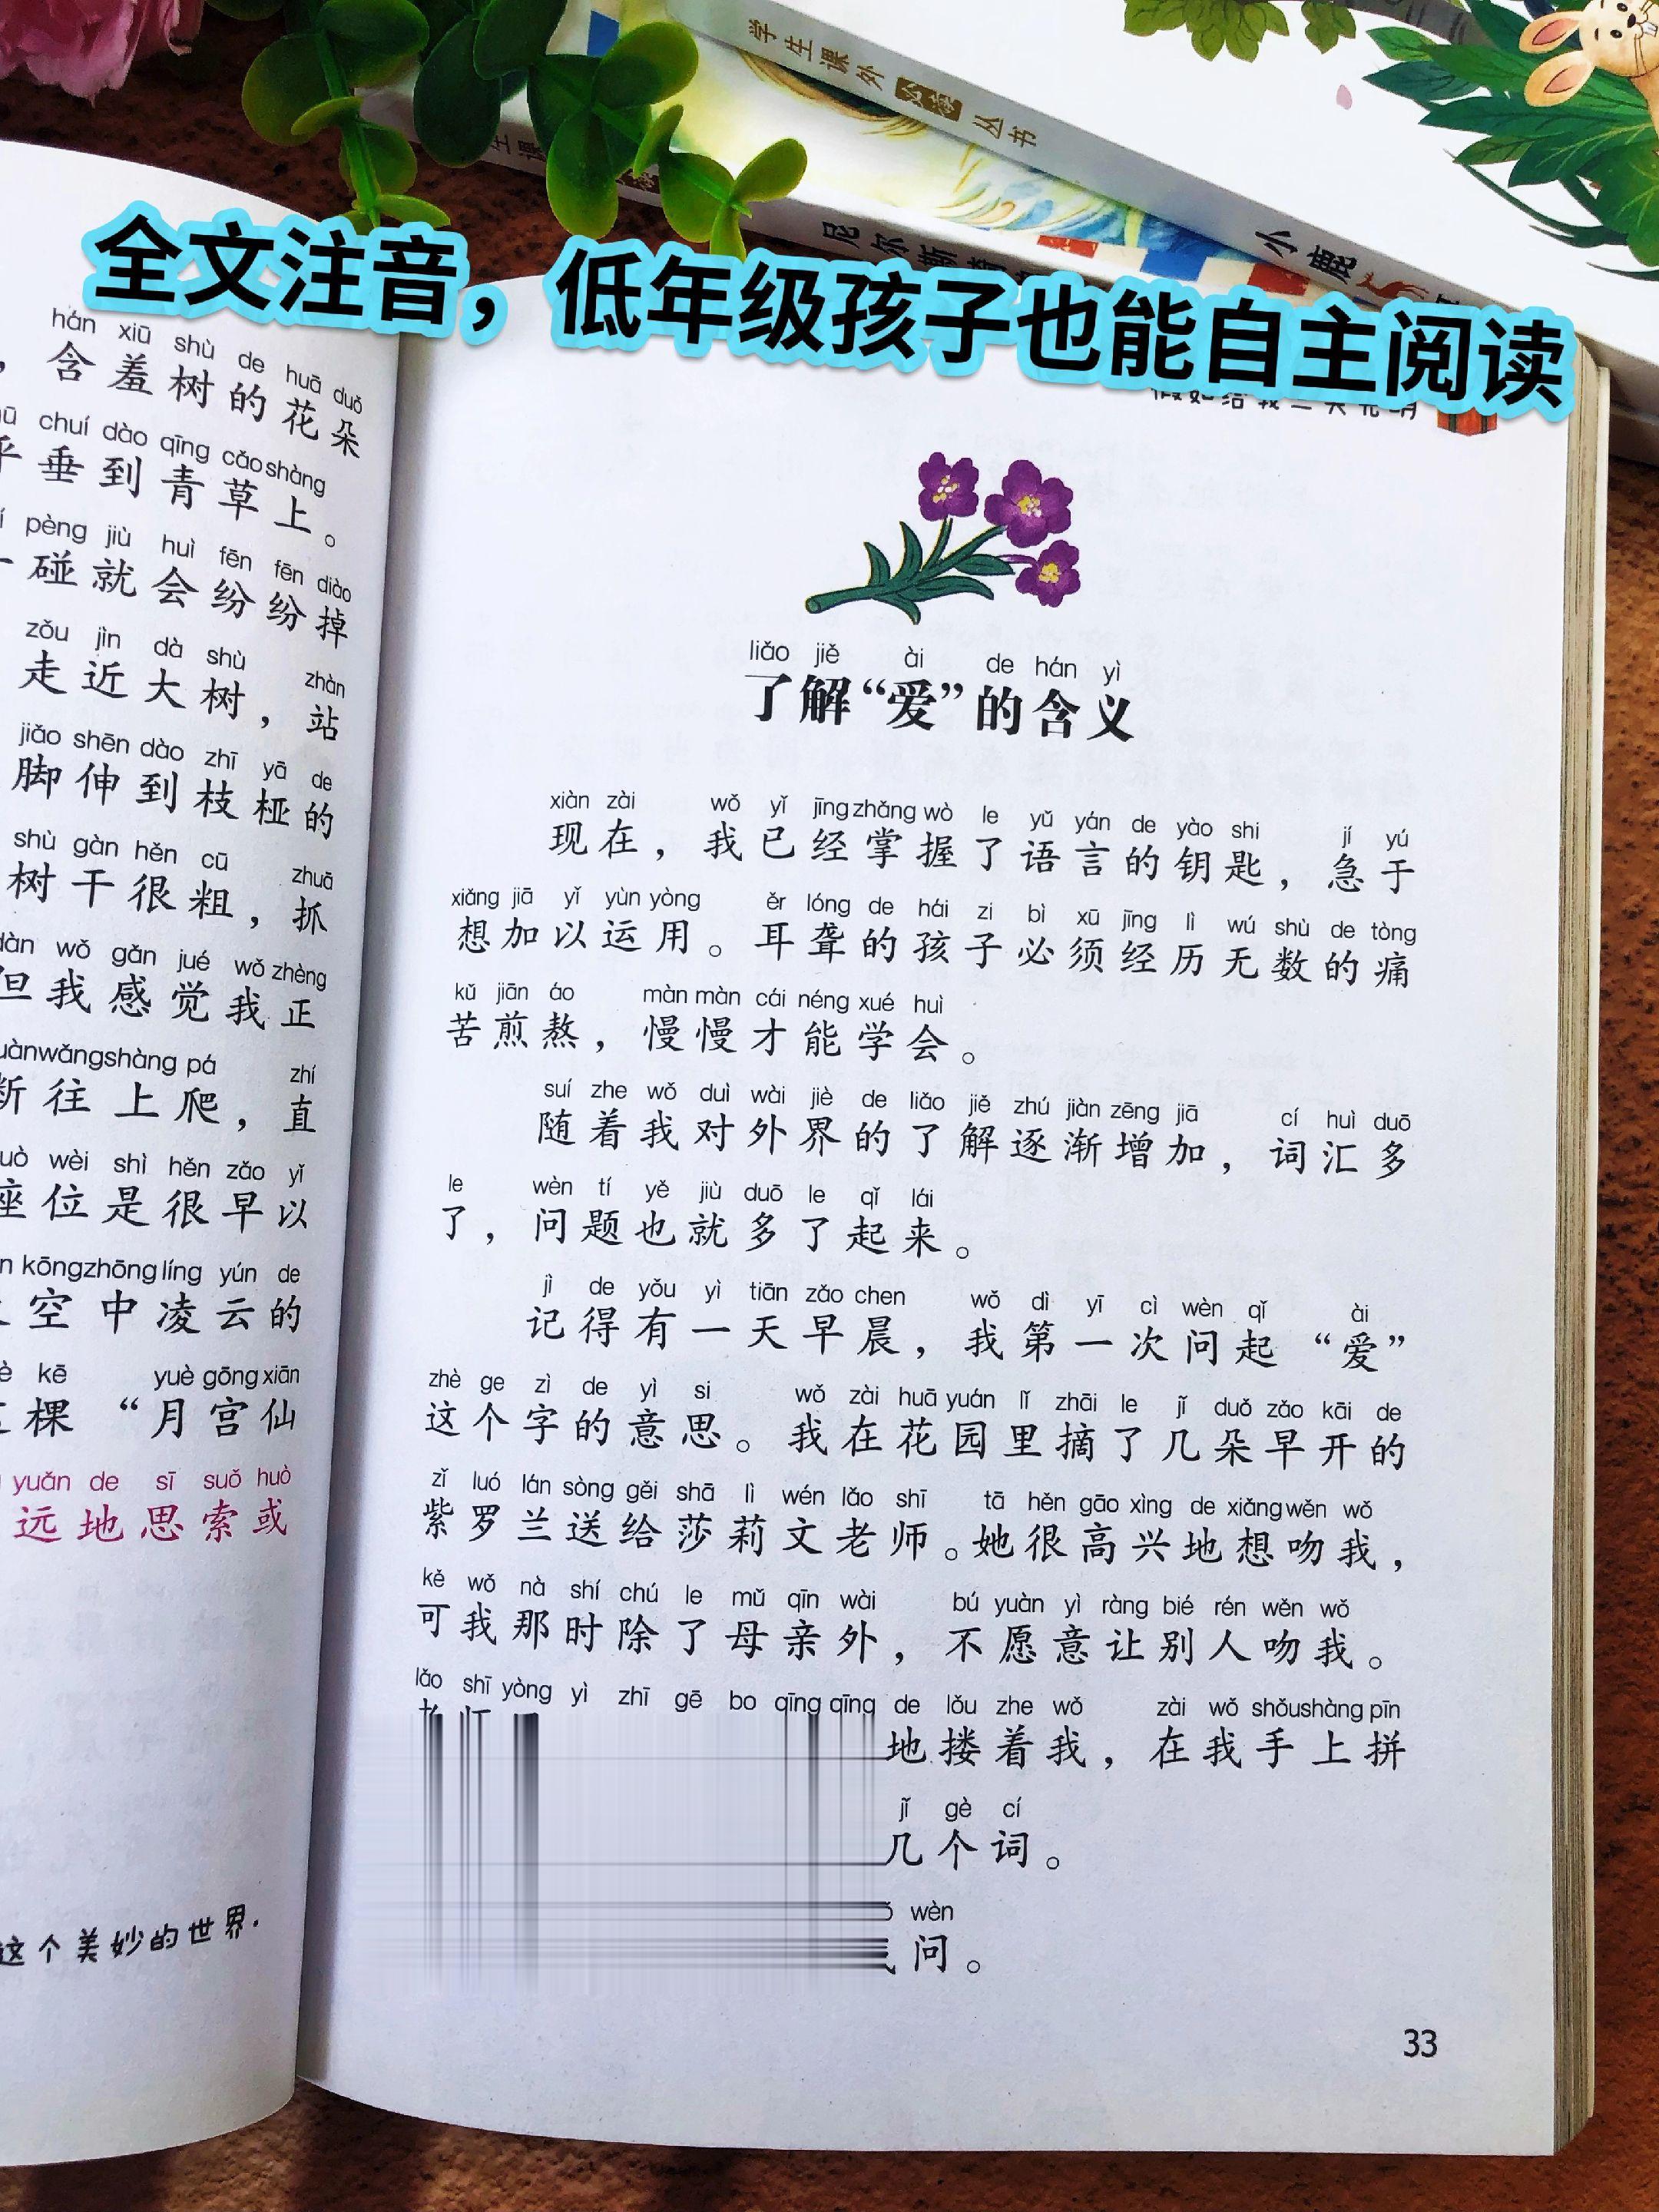 学生课外必读丛书
生课
必读
尼尔斯骑
小鹿
全文注音，低年级孩子也能自主阅读
hán xiū shù de huā duǒ
，含羞树的花朵
chuí dào qīng cǎo shàng
乎垂到青草上。
pèng jiù huì fēn fēn diào
一碰就会纷纷掉
zǒu jìn dà shù zhàn
走近大树，站
jiǎo shēn dào zhī yā de
脚伸到枝桠的
shù gàn hěn cū zhuā
树干很粗，抓
dàn wǒ gǎn jué wǒ zhèng
但我感觉我正
wǎng shàng pá zhí
断往上爬，直
wèi shì hěn zǎo yǐ
座位是很早以
kōng zhōng líng yún de
空中凌云的
kē yuè gōng xiān
棵“月宫仙
yuǎn de sī suǒ huò
远地思索或
这个美妙的世界.
假如给我三天光明
liǎo jiě ài de hán yì
了解“爱”的含义
xiàn zài wǒ yǐ jīng zhǎng wò le yǔ yán de yào shi jí yú
现在，我已经掌握了语言的钥匙，急于
xiǎng jiā yǐ yùn yòng ěr lóng de hái zi bì xū jīng lì wú shù de tòng
想加以运用。耳聋的孩子必须经历无数的痛
kǔ jiān áo màn màn cái néng xué huì
苦煎熬，慢慢才能学会。
suí zhe wǒ duì wài jiè de liǎo jiě zhú jiàn zēng jiā cí huì duō
随着我对外界的了解逐渐增加，词汇多
le wèn tí yě jiù duō le qǐ lái
了，问题也就多了起来。
jì de yǒu yì tiān zǎo chen wǒ dì yī cì wèn qǐ ài
记得有一天早晨，我第一次问起“爱”
zhè ge zì de yì si wǒ zài huā yuán lǐ zhāi le jǐ duǒ zǎo kāi de
这个字的意思。我在花园里摘了几朵早开的
zǐ luó lán sòng gěi shā lì wén lǎo shī tā hěn gāo xìng de xiǎng wěn wǒ
紫罗兰送给莎莉文老师。她很高兴地想吻我，
kě wǒ nà shí chú le mǔ qīn wài bú yuàn yì ràng bié rén wěn wǒ
可我那时除了母亲外，不愿意让别人吻我。
lǎo shī yòng yì zhī gē bo qīng qīng de lǒu zhe wǒ zài wǒ shǒu shàng pīn
地搂着我，在我手上拼
jǐ gè cí
几个词。
wèn
问。
33